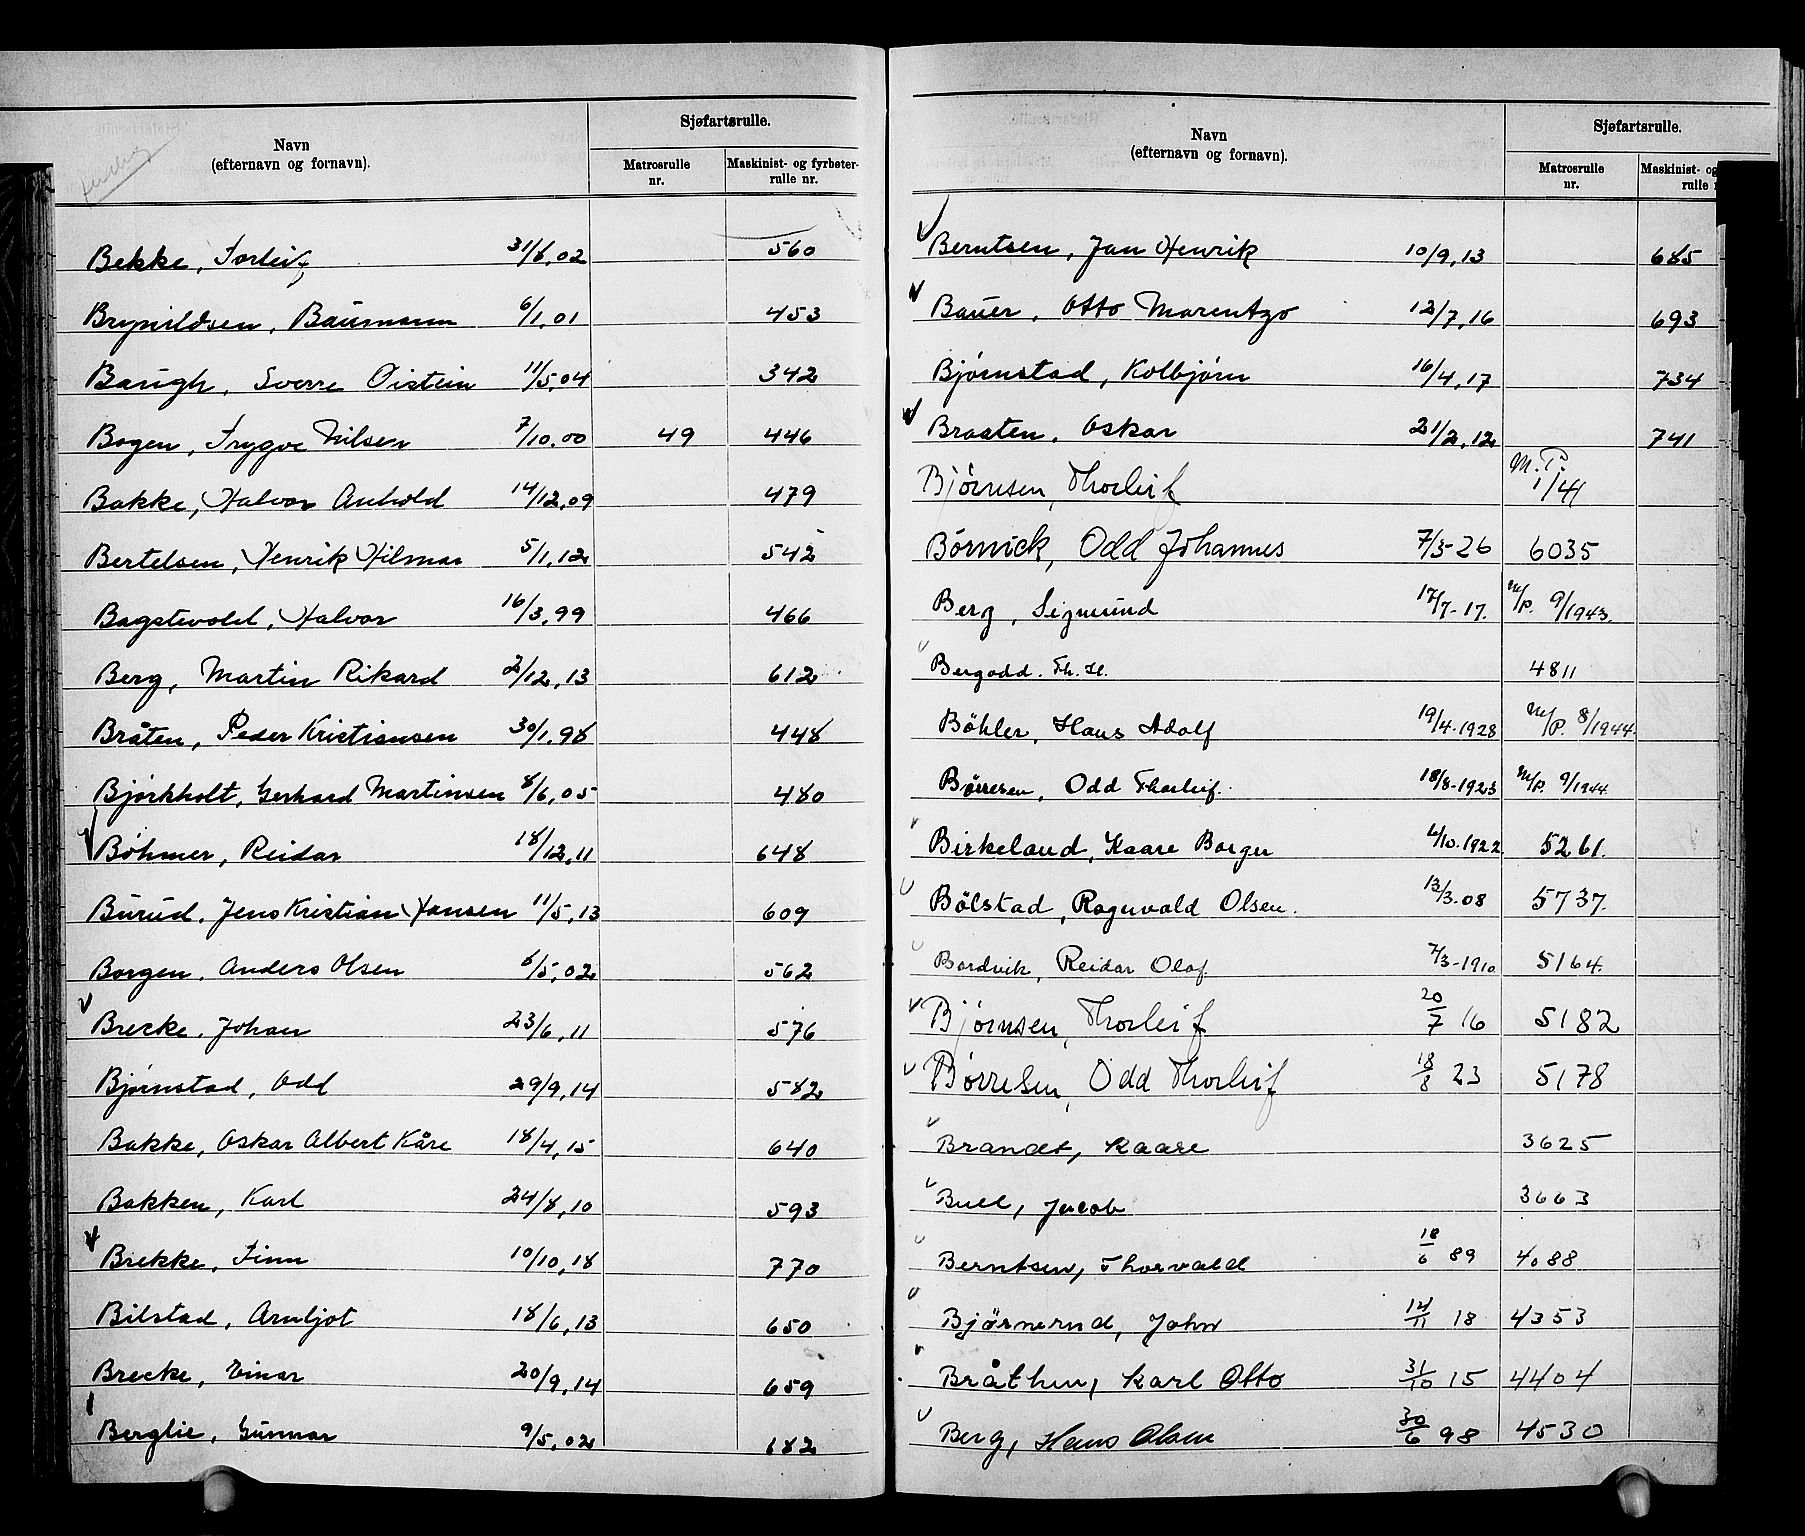 Navn
(efternavn og fornavn).
Sjøfartsrulle.
Matrosrulle
nr.
Maskinist- og fyrbøter-
rulle nr.
Bekke, Torleif 31/8,02 560
Brynildsen, Baumann 6/1,01 453
Baugh, Sverre Oistein 11/5,04 342
Bogen, Trygve Nilsen 7/10.00 49 446
Bakke, Halvor Anhold 14/12,09 479
Bertelsen, Henrik Hilmar 5/1,12 542
Bagstevold, Halvor 16/3,99 466
Berg, Martin Rikard 2/12,13 612
Bråten, Peder Kristiansen 30/1,98 448
Bjørkholt, Gerhard Martinsen 8/6,05 480
Bøhmer, Reidar 18/12,11 648
Burud, Jens Kristian Hansen 11/5,13 609
Borgen, Anders Olsen 6/5,02 562
Brecke, Johan 23/6,11 576
Bjørnstad, Odd 29/9,14 582
Bakke, Oskar Albert Kåre 18/4,15 640
Bakken, Karl 24/8,10 593
Brekke, Finn 10/10,18 770
Bilstad, Arnljot 18/6,13 650
Brecke, Einar 20/9,14 659
Berglie, Gunnar 9/5,02 682
Navn
(efternavn og fornavn).
Sjøfartsrulle.
Matrosrulle
nr.
Maskinist- og
rulle
Berntsen, Jan Henrik 10/9,13 685
Bauer, Otto Marentzo 12/7,16 693
Bjørnstad, Kolbjørn 16/4,17 734
Braaten, Oskar 21/2,12 741
Bjørnsen, Thorleif M.P. 1/41
Börnick, Odd Johannes 7/3-26 6035
Berg, Sigmund 17/7-17. M/P. 9/1943.
Bergodd. Th. H. 4811
Böhler, Hans Adolf 19/4-1928 M/P. 8/1944.
Børresen, Odd Thorleif. 18/8-1923 M/P. 9/1944.
Birkeland, Kaare Borger 4/10-1922 5261.
Bölstad, Ragnvald Olsen. 13/3-08 5737.
Bordvik, Reidar Olaf 7/3-1910 5164.
Bjørnsen, Thorleif 20/7 16 5182
Børresen, Odd Thorleif 18/8 23 5178
Brandt, Kaare 3625
Bull, Jacob 3663
Berntsen, Thorvald 18/6 89 4088
Bjørnerud, John 14/11 18 4353
Bråthen, Karl Otto 31/10 15 4404
Berg, Hans Olsen 30/6 98 4530